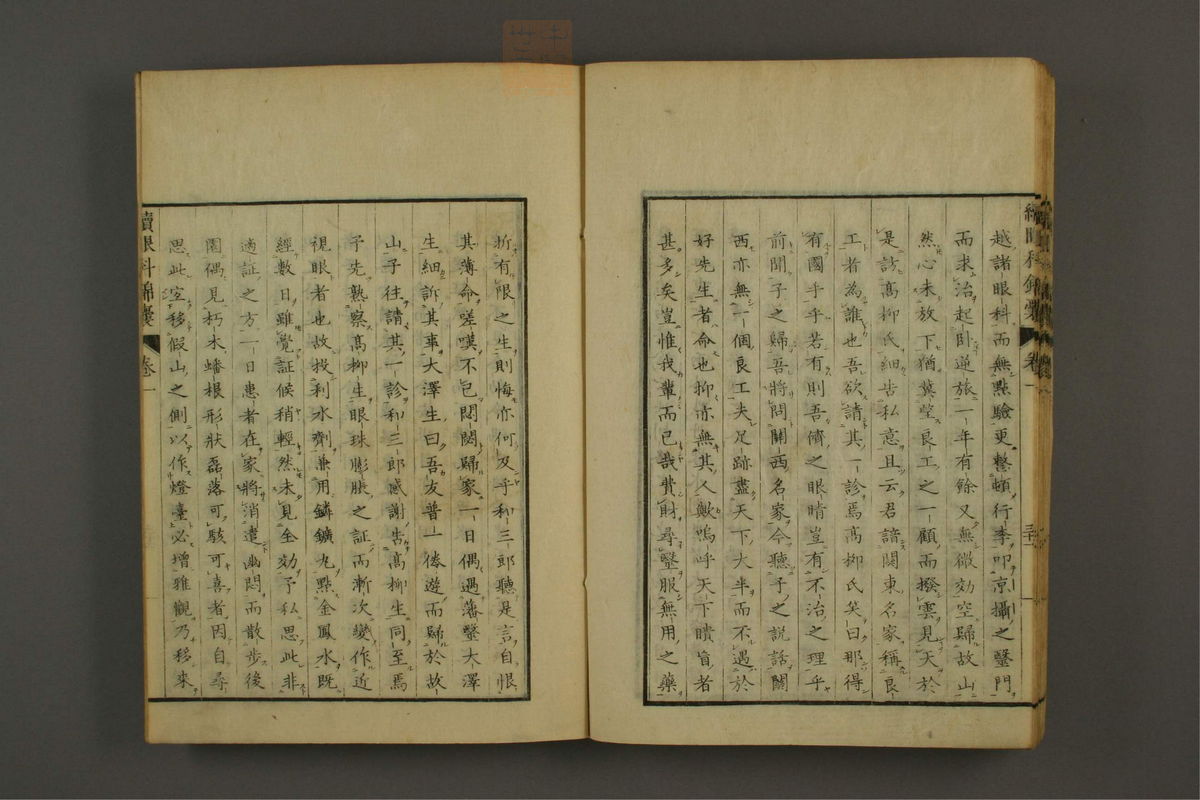 越諸眼科而無點驗更整頓行李叩京攝之毉門
而求治起臥逆旅一年有餘又無微効空歸故山
然心未放下猶冀望良工之一顧而撥雲見天於
是訪髙柳氏細告私意且云君諳関東名家稱良
工者為誰也吾欲請其一診焉髙柳氏笑曰那得
有國乎乎若有則吾儕之眼晴豈有不治之理乎
前聞子之歸吾將問關西名家今聽子之説話關
西亦無一個良工夫足跡盡天下大半而不遇於
好先生者命也抑亦無其人歟嗚呼天下瞶盲者
甚多矣豈惟我輩而已哉費財尋毉服無用之藥
續眼科錦囊 卷一
折有限之生則悔亦何及乎和三郎聽是言自恨
其薄命嗟嘆不已悶悶歸家一日偶遇藩毉大澤
生細訴其事大澤生曰吾友普一倦遊而歸於故
山子往請其一診和三郎感謝告髙柳生同至焉
予先熟察髙柳生眼珠膨脹之証而漸次變作近
視眼者也故投利水劑兼用鏻鑛丸點金鳳水既
經數日雖覺証候稍輕然未見全効予私思此非
適証之方一日患者在家將消遣幽悶而散步後
園偶見朽木蟠根形狀磊落可駭可喜者因自尋
思此宜移假山之側以作燈臺必增雅觀乃移來
續眼科錦囊 卷一